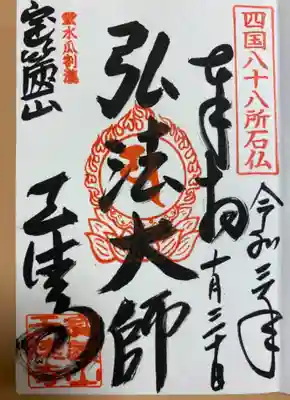 四国八十八所石仏
奉拝
令和三年
十月三十日
弘法大師
霊水瓜割瀧
宝篋山
天徳寺